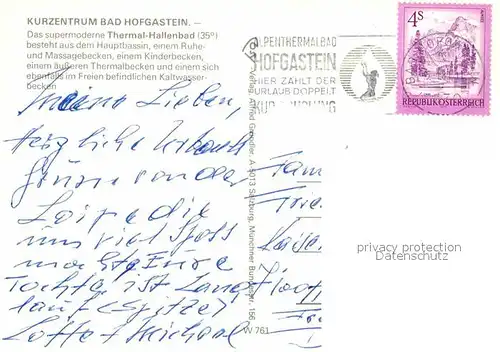 KURZENTRUM BAD HOFGASTEIN. —
Das supermoderne Thermal-Hallenbad (35°)
besteht aus dem Hauptbassin, einem Ruhe-
und Massagebecken, einem Kinderbecken,
einem äußeren Thermalbecken und einem sich
ebenfalls im Freien befindlichen Kaltwasser-
becken
Meine Lieben,
Herzliche Urlaubs
grüsse von der
Loipe die
uns viel Spass
macht. Eure
Tochter ist Lang
lauf (Spitze)
Lotte + Michael
Verlag Alfred Gründler, A 5013 Salzburg, Münchner Bundesstr. 156
W 761
ALPENTHERMALBAD
HOFGASTEIN
HIER ZÄHLT DER
URLAUB DOPPELT
4s
REPUBLIK ÖSTERREICH
Fam
privacy protection
Datenschutz